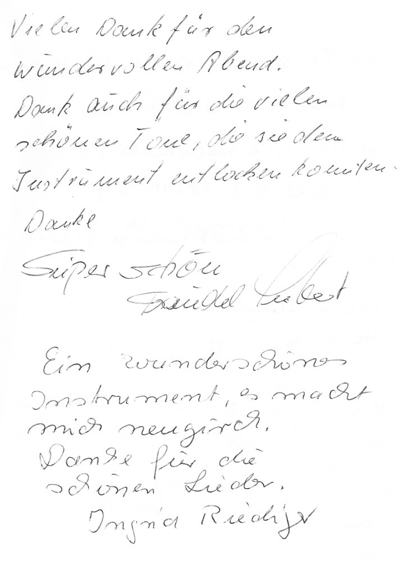 Vielen Dank für den
wundervollen Abend.
Dank auch für die vielen
schönen Töne, die sie dem
Instrument entlocken konnten.
Danke
Super schön
Ein wunderschönes
Instrument, es macht
mich neugirch.
Danke für die
schönen Lieder.
Ingrid Riediger